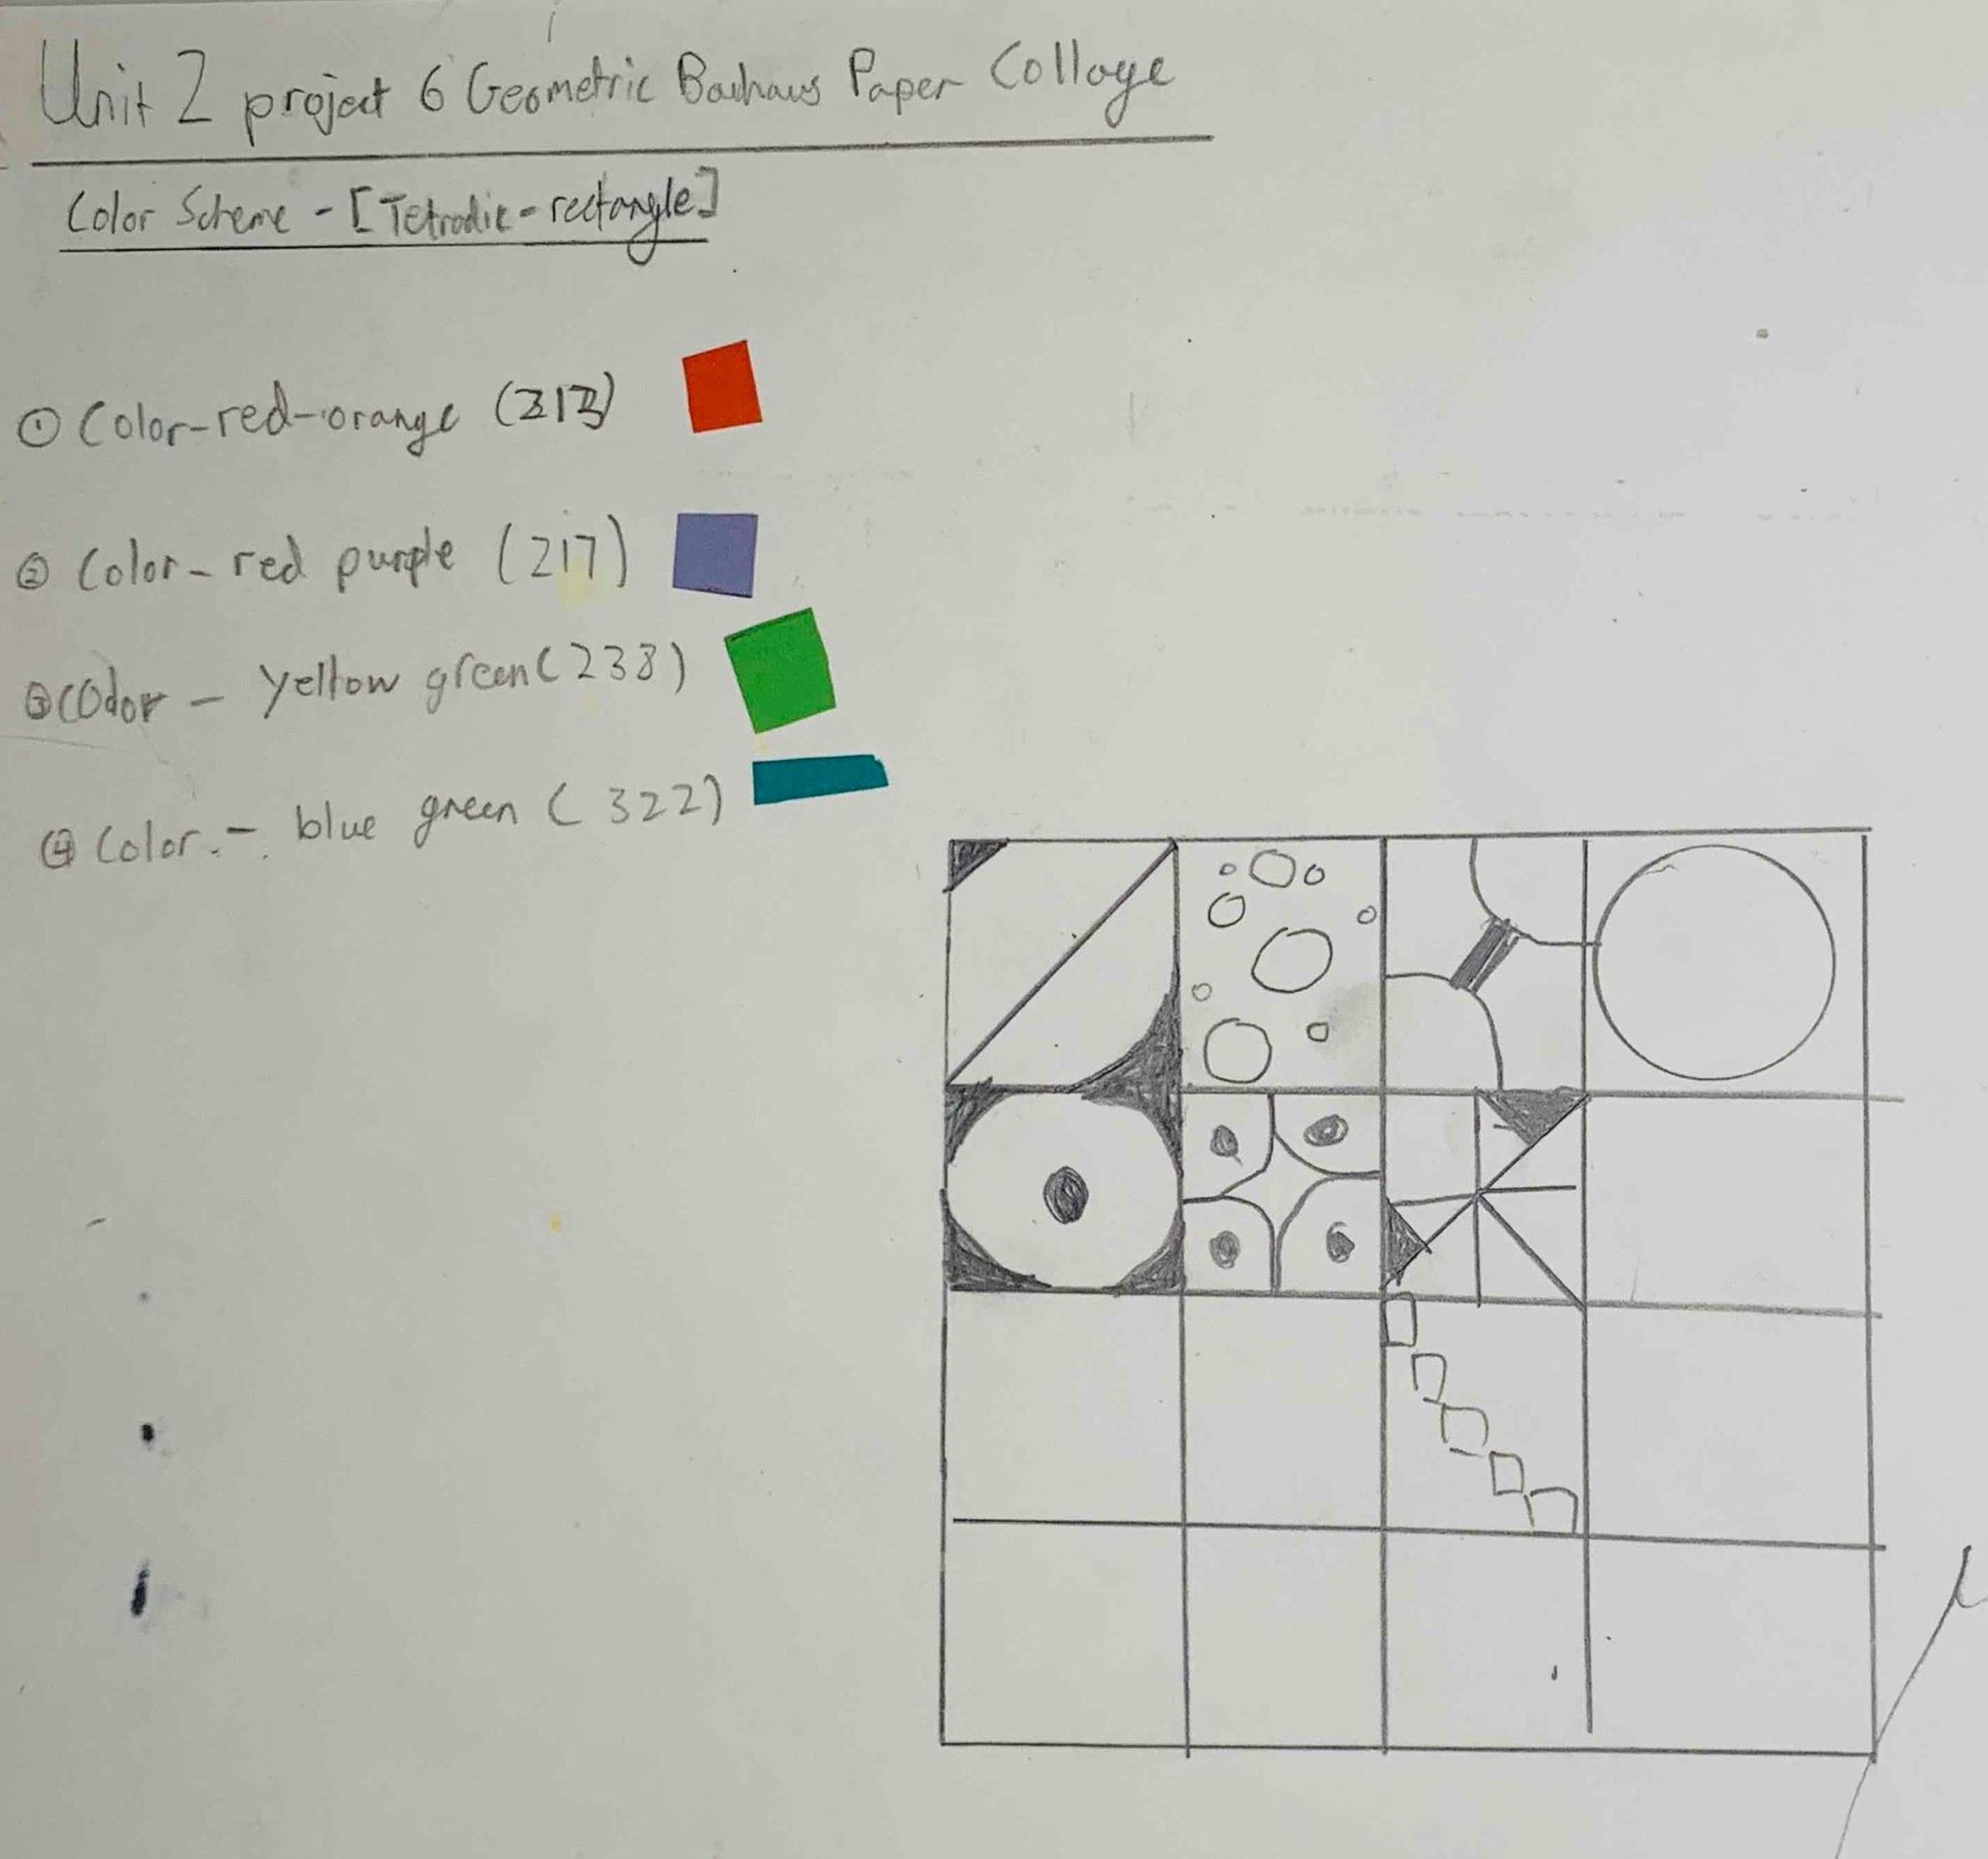 Unit 2 project 6 Geometric Bauhaus Paper Collage
Color Scheme - [Tetradic - rectangle]
① Color-red-orange (313)
② Color- red purple (217)
③ Color - yellow green (238)
④ Color. - blue green ( 322)